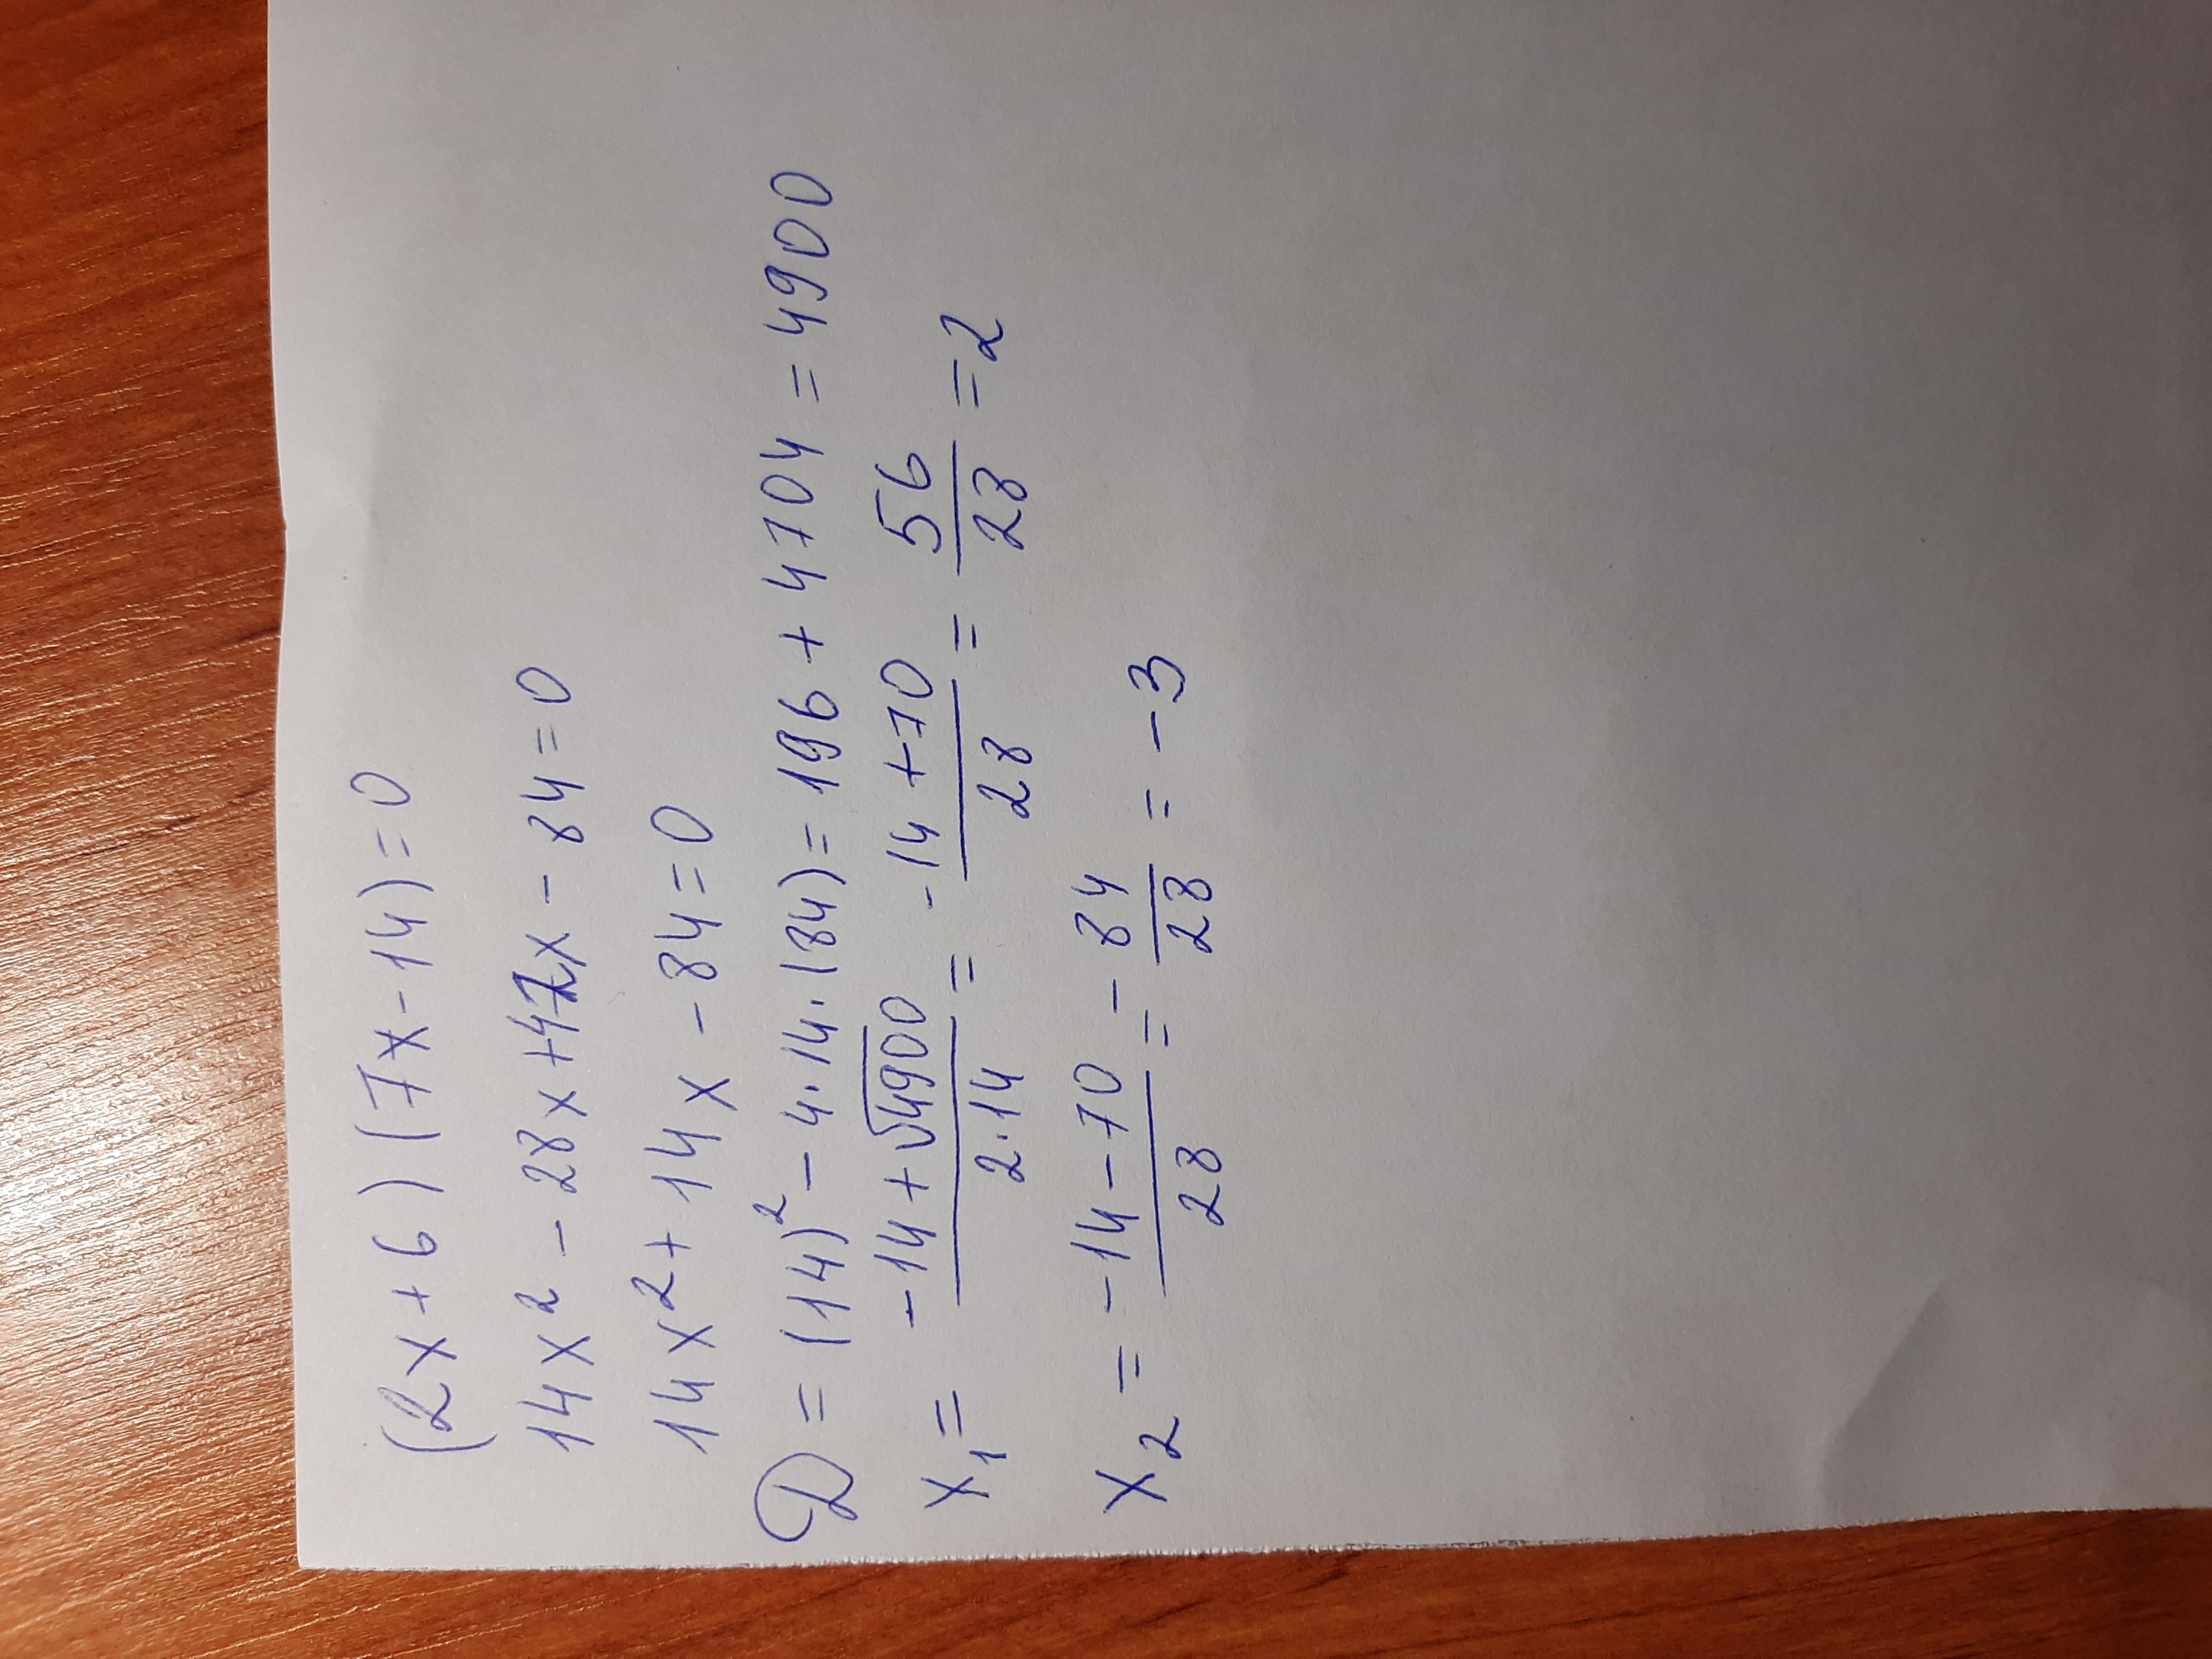 (2x+6)(7x-14)=0
14x² - 28x+42x - 84=0
14x²+14x-84=0
D=(14)²-4·14·(84)=196+4704=4900
x₁= (-14+√4900)/(2·14) = (-14+70)/28 = 56/28 =2
x₂= (-14-70)/28 = -84/28 = -3